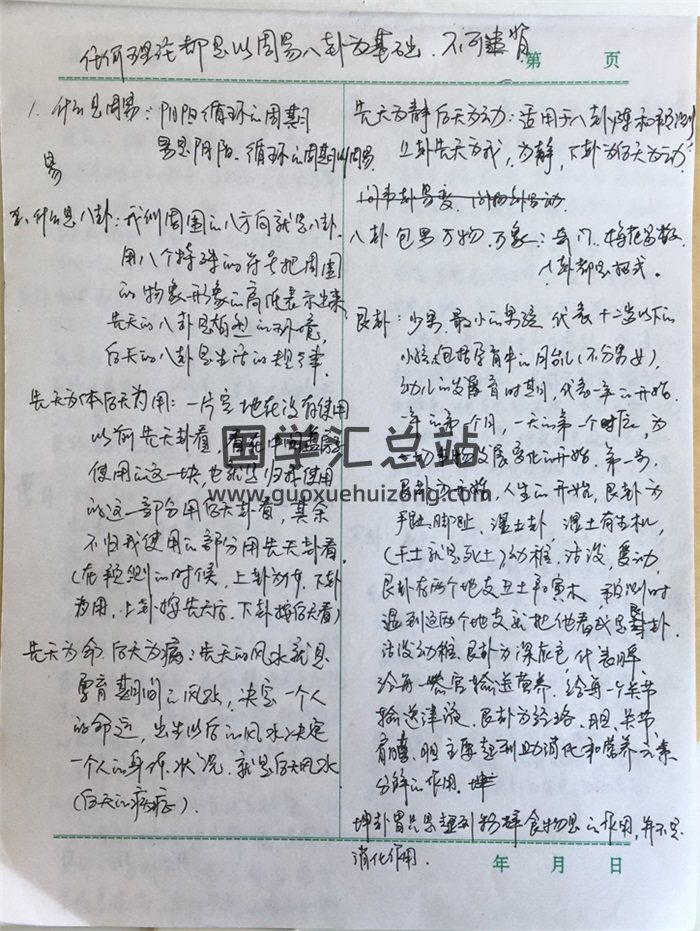 任何理论都是以周易八卦为基础.不可违背
第 页
1. 什么是周易:阴阳循环的周期
易是阴阳.循环的周期叫周易
易
2. 什么是八卦:我们周围的八方向就是八卦.
用八个特殊的符号把周围
的物象形象的高低表示出来
先天的八卦是 的环境,
后天的八卦是生活的规律.
先天为体后天为用:一片空地在没有使用
以前先天卦看,
使用的这一块,也就是归我使用
的这一部分用后天卦看,其余
不归我使用的部分用先天卦看
(在预测的时候,上卦为体,下卦
为用,上卦按先天看,下卦按后天看)
先天为命 后天为病:先天的风水就是
孕育期间的风水,决定一个人
的命运,出生以后的风水决定
一个人的身体状况.就是后天风水
(后天的病症).
先天为静 后天为动:适用于八卦阵和预测
上卦先天为我,为静,下卦为后天为动
八卦包罗万物.万象:奇门、梅花易数、
八卦都是招式。
艮卦:少男.最小的男孩 代表十二岁以下的
小孩包括孕育中的胎儿(不分男女),
幼儿的发展育时期,代表一年的开始.
一年的第一个月,一天的第一个时辰,为
一切事物发展变化的开始.第一步.
艮卦为开始,人生的开始,艮卦为
手趾.脚趾.湿土卦,湿土有生机,
(干土就是死土)动植.活泼,要动,
艮卦有两个地支丑土和寅木,预测时
遇到这两个地支就把他看成是艮卦.
活泼动植.艮卦为深 色,代表脾
给每一器官输送营养.给每一个关节
输送津液.艮卦为经络.胆.关节,
胆主要起到助消化和营养元素
分解的作用.坤
坤卦胃只是起到粉碎食物的作用,并不是
消化作用.
国学汇总站
www.guoxuehuizong.com
年 月 日